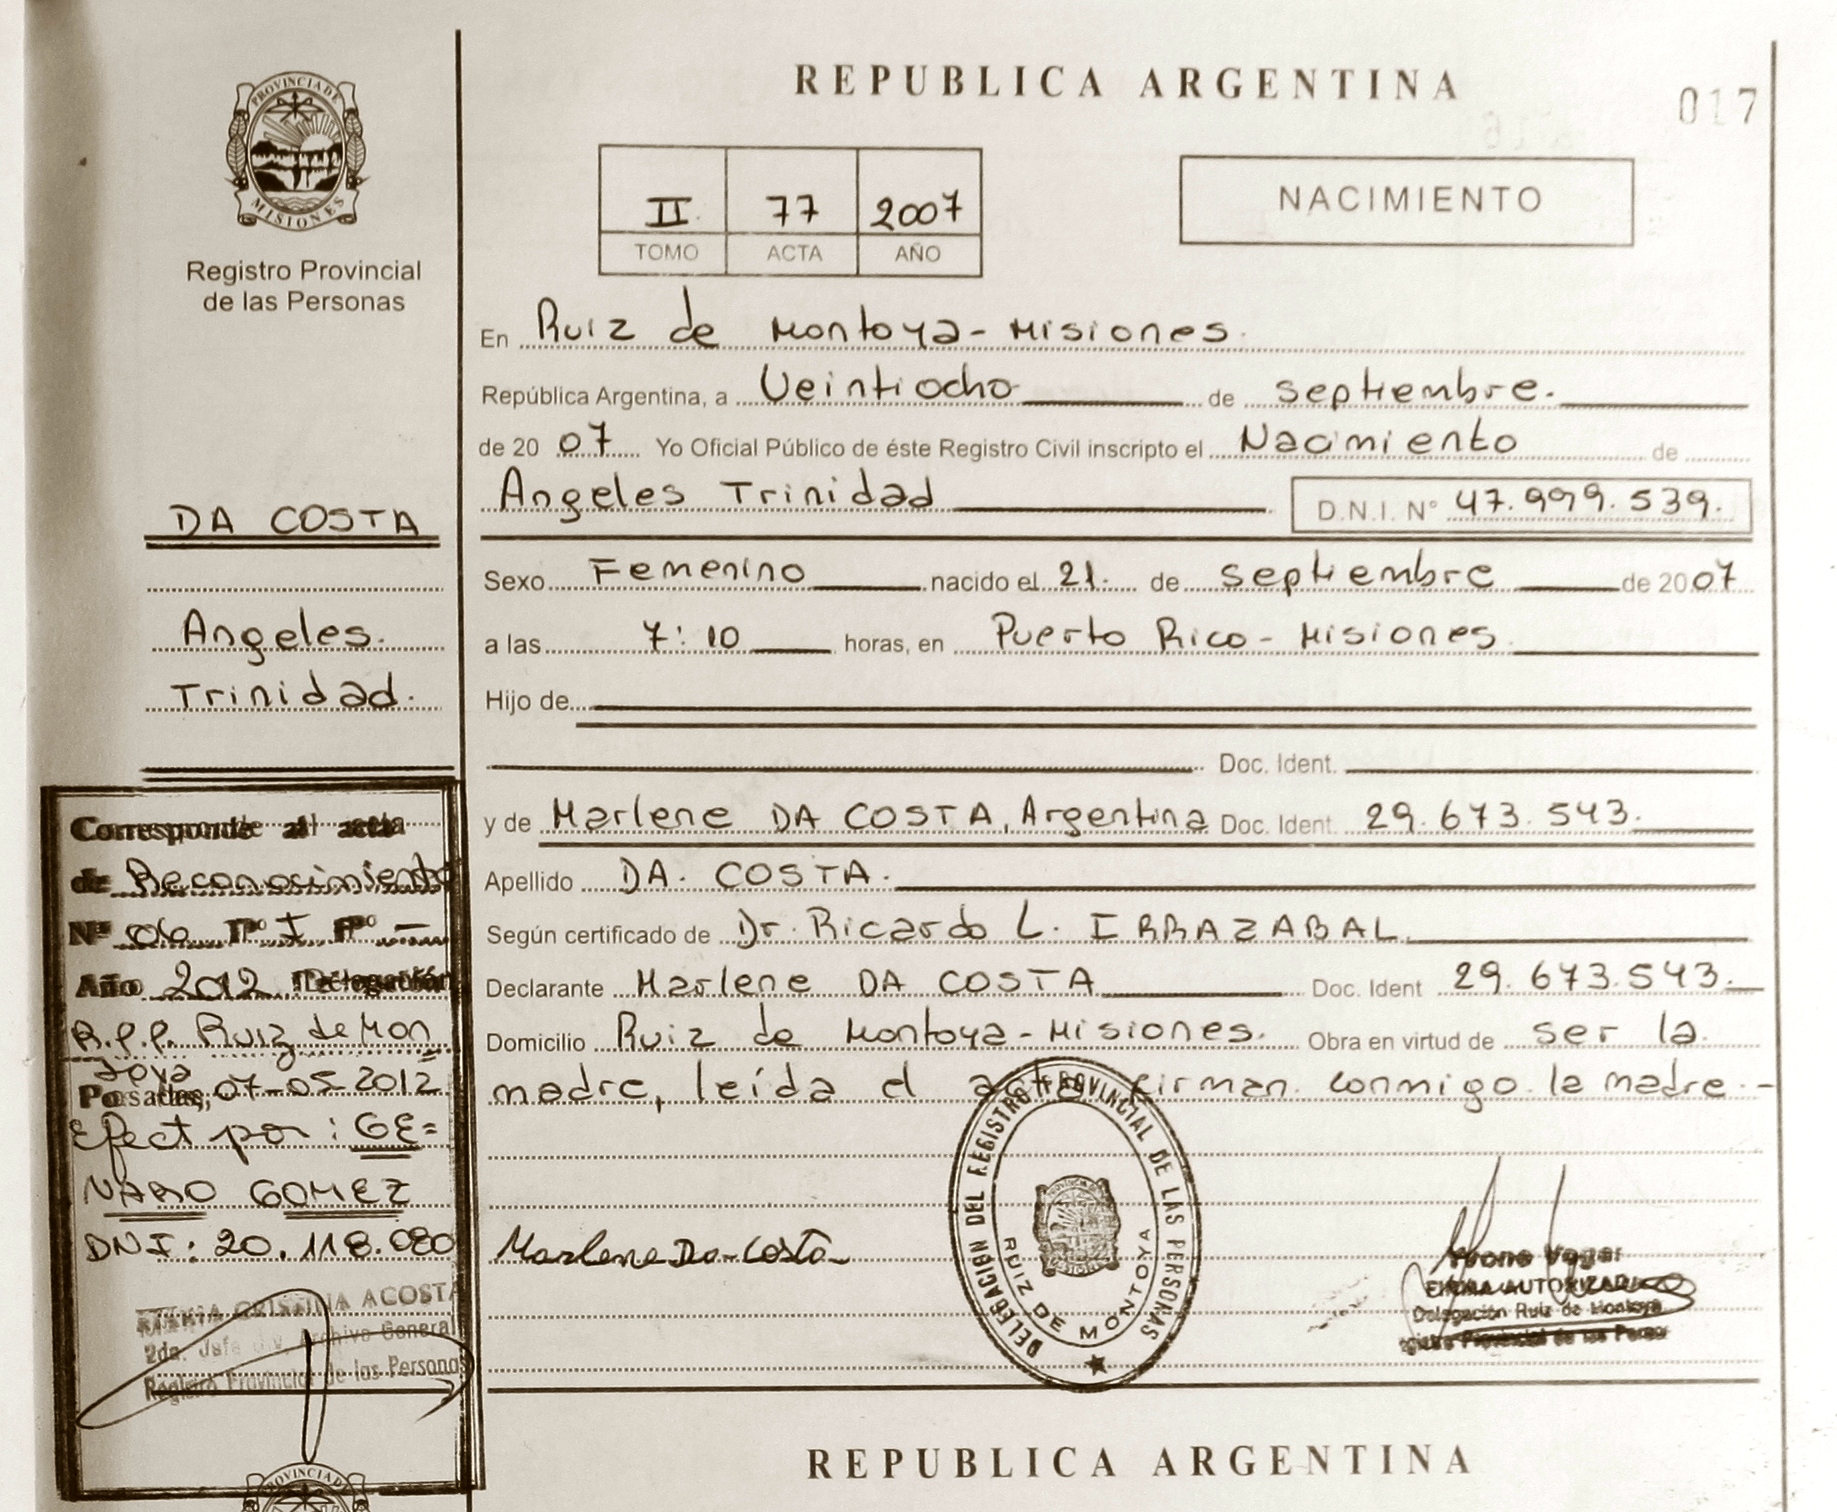 REPUBLICA ARGENTINA
017
PROVINCIA DE
MISIONES
Registro Provincial
de las Personas
II 77 2007
TOMO ACTA AÑO
NACIMIENTO
En Ruiz de Montoya-Misiones.
República Argentina, a Veintiocho de septiembre.
de 2007 Yo Oficial Público de éste Registro Civil inscripto el Nacimiento de
Angeles Trinidad D.N.I. N° 47.999.539.
Sexo Femenino nacido el 21. de septiembre de 2007
a las 7:10 horas, en Puerto Rico - Misiones.
Hijo de
Doc. Ident.
y de Marlene DA COSTA, Argentina Doc. Ident 29.673.543.
Apellido DA. COSTA.
Según certificado de Dr. Ricardo L. IRRAZABAL
Declarante Marlene DA COSTA Doc. Ident 29.673.543.
Domicilio Ruiz de Montoya-Misiones. Obra en virtud de ser la
madre, leída el acta firman conmigo la madre.-
Marlene Da Costa
DELEGACION DEL REGISTRO PROVINCIAL DE LAS PERSONAS
RUIZ DE MONTOYA
Yvone Vogel
FIRMA AUTORIZADA
Delegación Ruiz de Montoya
Registro Provincial de las Personas
DA COSTA
Angeles.
Trinidad.
Corresponde al acta
de Reconocimiento
N° 06 T° I F° —
Año 2012 Delegación
R.P.P. Ruiz de Mon
toya
Posadas, 07-05-2012
Efect por: GE=
NARO GOMEZ
DNI: 20.118.080
MARIA CRISTINA ACOSTA
2da. Jefa div. Archivo General
Registro Provincial de las Personas
PROVINCIA DE
REPUBLICA ARGENTINA